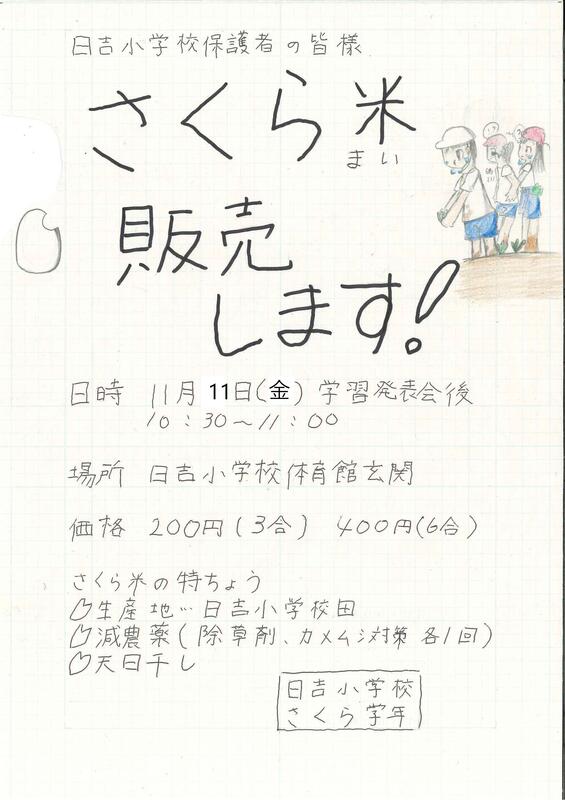 日吉小学校保護者の皆様
さくら米
まい
販売
します!
日時 11月11日(金) 学習発表会後
10:30〜11:00
場所 日吉小学校体育館玄関
価格 200円(3合) 400円(6合)
さくら米の特ちょう
生産地…日吉小学校田
減農薬(除草剤、カメムシ対策 各1回)
天日干し
日吉小学校
さくら学年